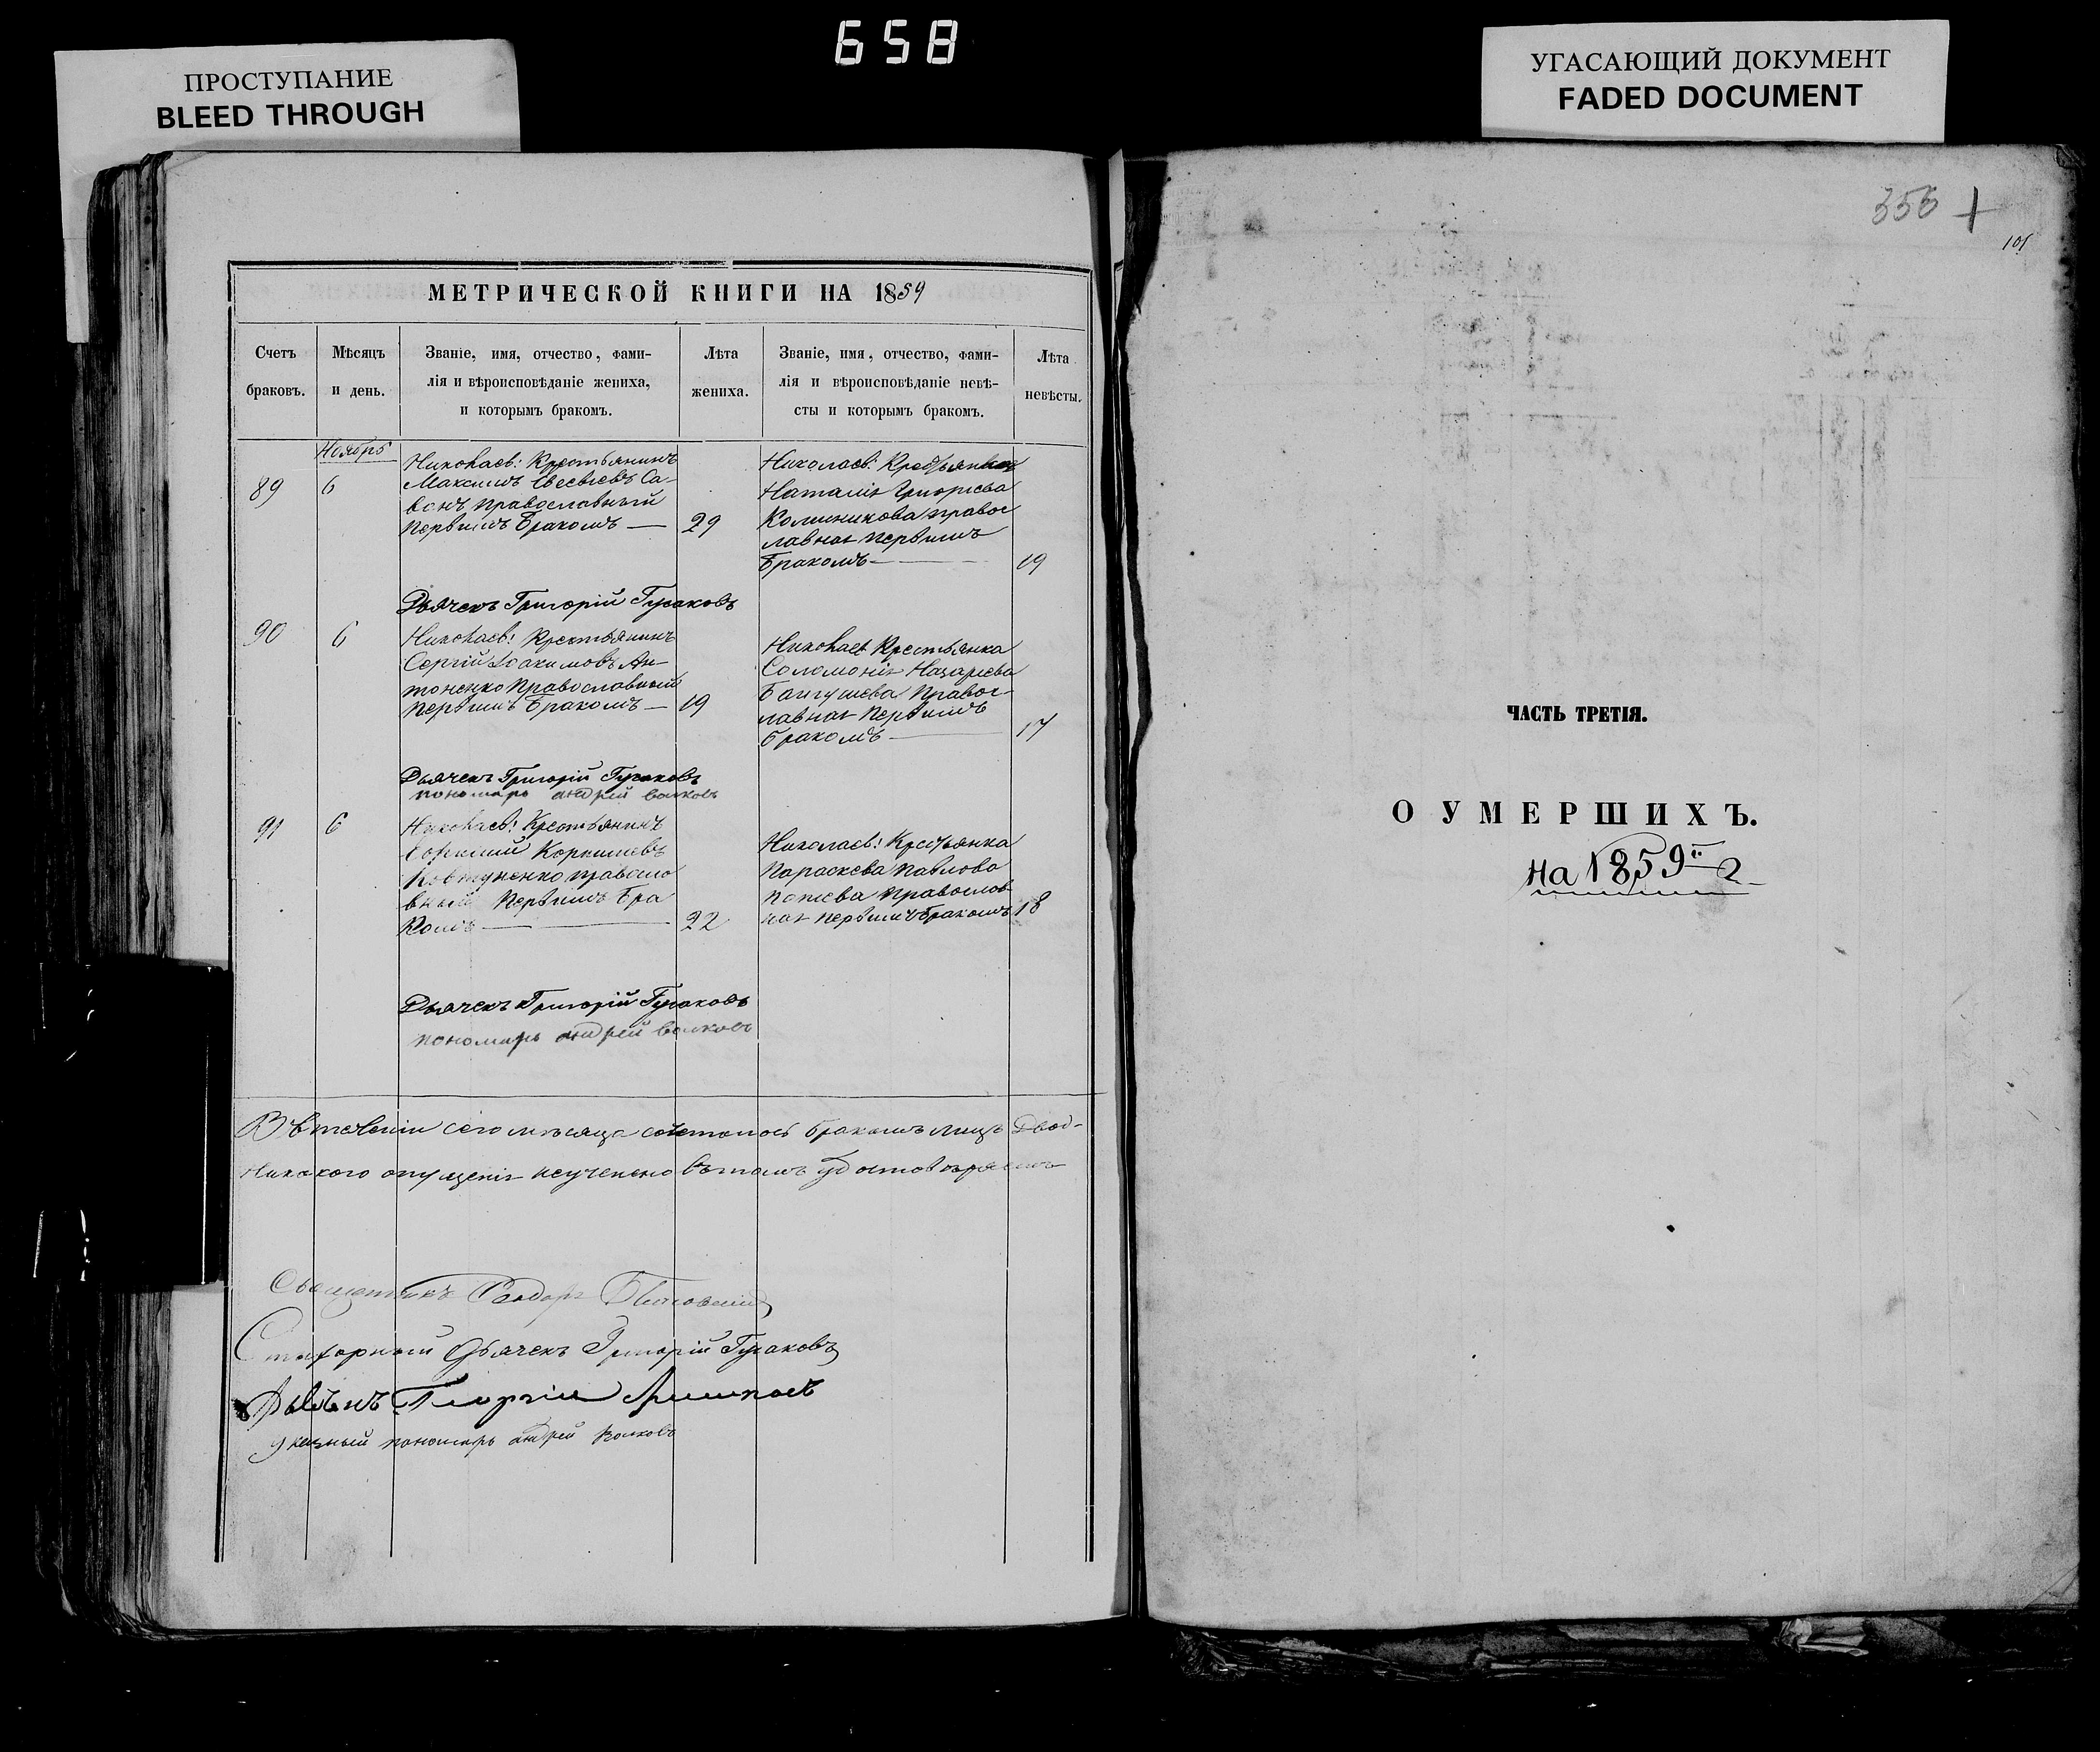 658
ПРОСТУПАНИЕ
BLEED THROUGH
УГАСАЮЩИЙ ДОКУМЕНТ
FADED DOCUMENT
МЕТРИЧЕСКОЙ КНИГИ НА 1859
Счетъ браковъ.
Мѣсяцъ и день.
Званіе, имя, отчество, фами-
лія и вѣроисповѣданіе жениха,
и которымъ бракомъ.
Лѣта жениха.
Званіе, имя, отчество, фами-
лія и вѣроисповѣданіе невѣ-
сты и которымъ бракомъ.
Лѣта невѣсты.
Ноябрь
89
6
Николаев: Крестьянинъ
Максимъ Са-
православный
первымъ бракомъ —
29
Николаев: Крестьянка
Наталія Григорьева
православ
ная первымъ
бракомъ —
19
Дьячекъ Григорій Гусаковъ
90
6
Николаев: Крестьянинъ
Сергій Іоакимовъ Ан-
тоненко православный
первымъ бракомъ —
19
Николаев Крестьянка
Соломонія Назарьева
правос-
лавная первымъ
бракомъ —
17
Дьячекъ Григорій Гусаковъ
пономарь андрей волковъ
91
6
Николаев: Крестьянинъ
Ковтуненко правосла
вный первымъ бра
комъ —
22
Николаев: Крестьянка
Параскева Павлова
православ
ная первымъ бракомъ
18
Дьячекъ Григорій Гусаковъ
пономарь андрей волковъ
Въ теченіи сего мѣсяца сочеталось бракомъ лицъ
никакого опущенія неучинено въ томъ удостовѣряемъ
Священникъ
Дьячекъ Григорій Гусаковъ
Георгій
Указный пономарь андрей волковъ
101
ЧАСТЬ ТРЕТІЯ.
О УМЕРШИХЪ.
на 1859й г